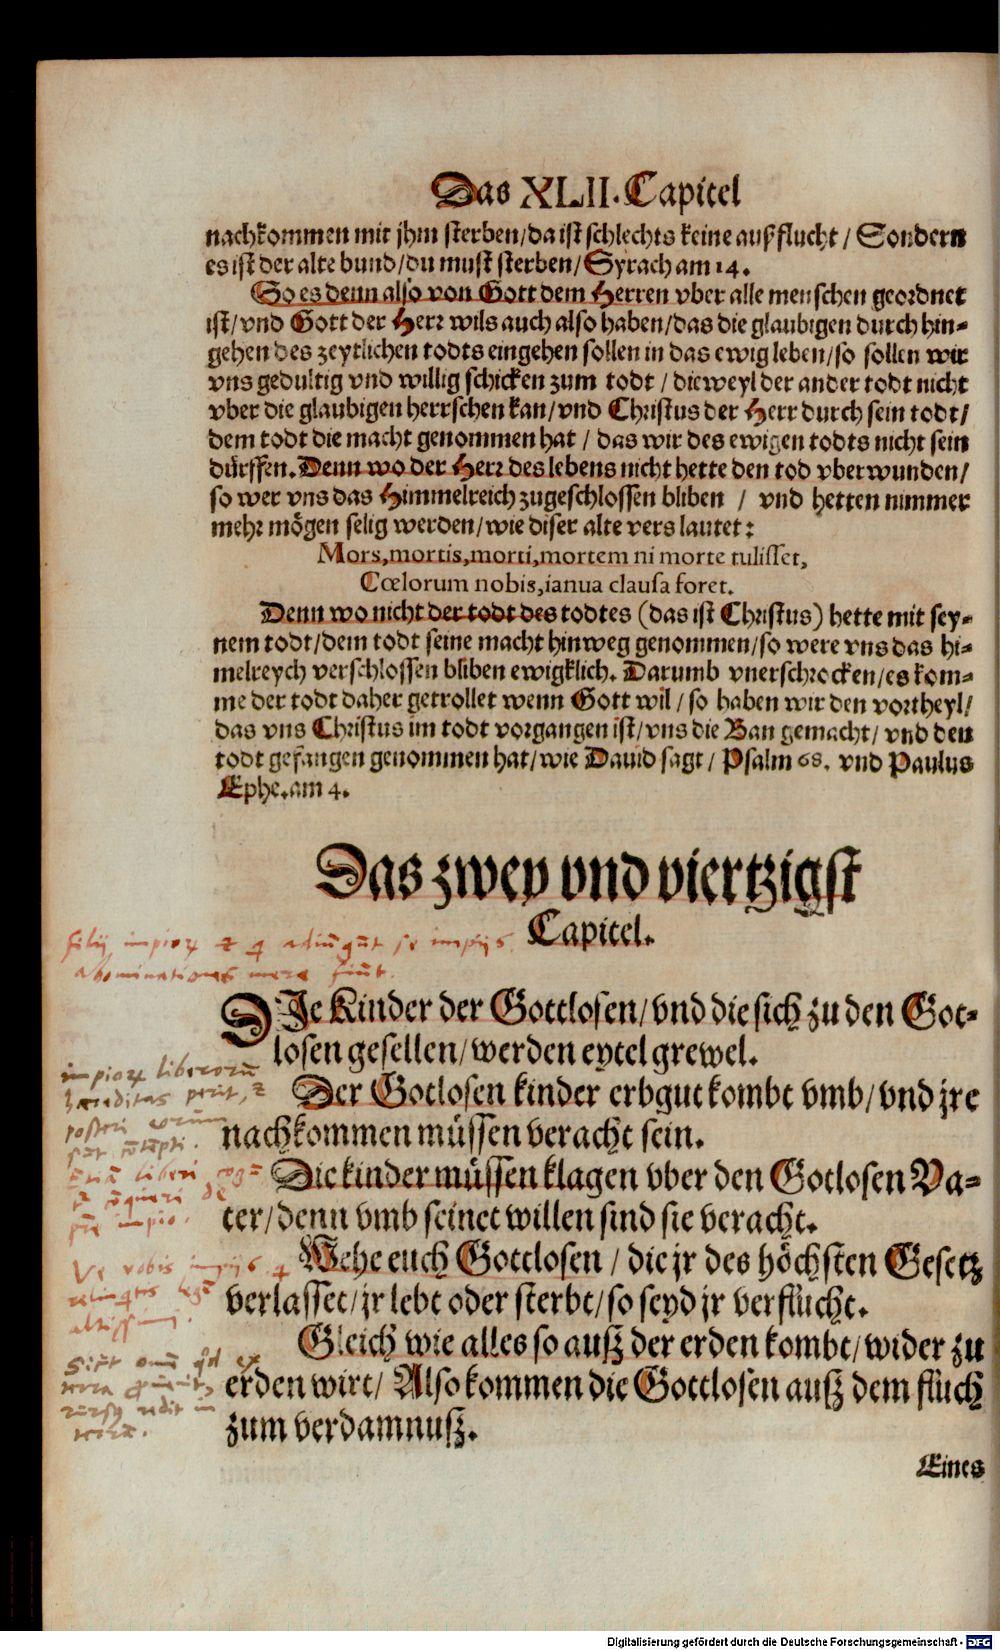 Das XLII. Capitel
nachkommen mit jhm sterben/da ist schlechts keine außflucht / Sondern
es ist der alte bund/du must sterben/Syrach am 14.
So es denn also von Gott dem Herren vber alle menschen geordnet
ist/vnd Gott der Herr wils auch also haben/das die glaubigen durch hin-
gehen des zeytlichen todts eingehen sollen in das ewig leben/so sollen wir
vns gedultig vnd willig schicken zum todt / dieweyl der ander todt nicht
vber die glaubigen herrschen kan/vnd Christus der Herr durch sein todt/
dem todt die macht genommen hat / das wir des ewigen todts nicht sein
dürffen. Denn wo der Herr des lebens nicht hette den tod vberwunden/
so wer vns das Himmelreich zugeschlossen bliben / vnd hetten nimmer
mehr mögen selig werden/wie diser alte vers lautet:
Mors,mortis,morti,mortem ni morte tulisset,
Cœlorum nobis,ianua clausa foret.
Denn wo nicht der todt des todtes (das ist Christus) hette mit sey-
nem todt/dem todt seine macht hinweg genommen/so were vns das hi-
melreych verschlossen bliben ewigklich. Darumb vnerschrocken/es kom-
me der todt daher getrollet wenn Gott wil/ so haben wir den vortheyl/
das vns Christus im todt vorgangen ist/vns die Ban gemacht/ vnd den
todt gefangen genommen hat/wie Dauid sagt/ Psalm 68. vnd Paulus
Ephe.am 4.
Das zwey vnd viertzigst
Capitel.
filij impioꝝ et q̄ adiūgūt se impijs
abominationes mere fiūt.
DIe Kinder der Gottlosen/vnd die sich zu den Got-
losen gesellen/werden eytel grewel.
impioꝝ liberorū
hæreditas perit, et
posteri eorum
sūt cōtēpti.
Der Gotlosen kinder erbgut kombt vmb/vnd jre
nachkommen müssen veracht sein.
Etiā liberi cogū
t̄ cōqueri de
pr̄e impio.
Die kinder müssen klagen vber den Gotlosen Va-
ter/denn vmb seinet willen sind sie veracht.
Ve vobis impijs q̄
relinq̄tis legē
altissimi.
Wehe euch Gottlosen / die jr des höchsten Gesetz
verlasset/jr lebt oder sterbt/so seyd jr verflucht.
Sicut omē qd ex
terra
rursus redit in
terrā.
Gleich wie alles so auß der erden kombt/wider zu
erden wirt/ Also kommen die Gottlosen auß dem fluch
zum verdamnuß.
Eines
Digitalisierung gefördert durch die Deutsche Forschungsgemeinschaft - DFG